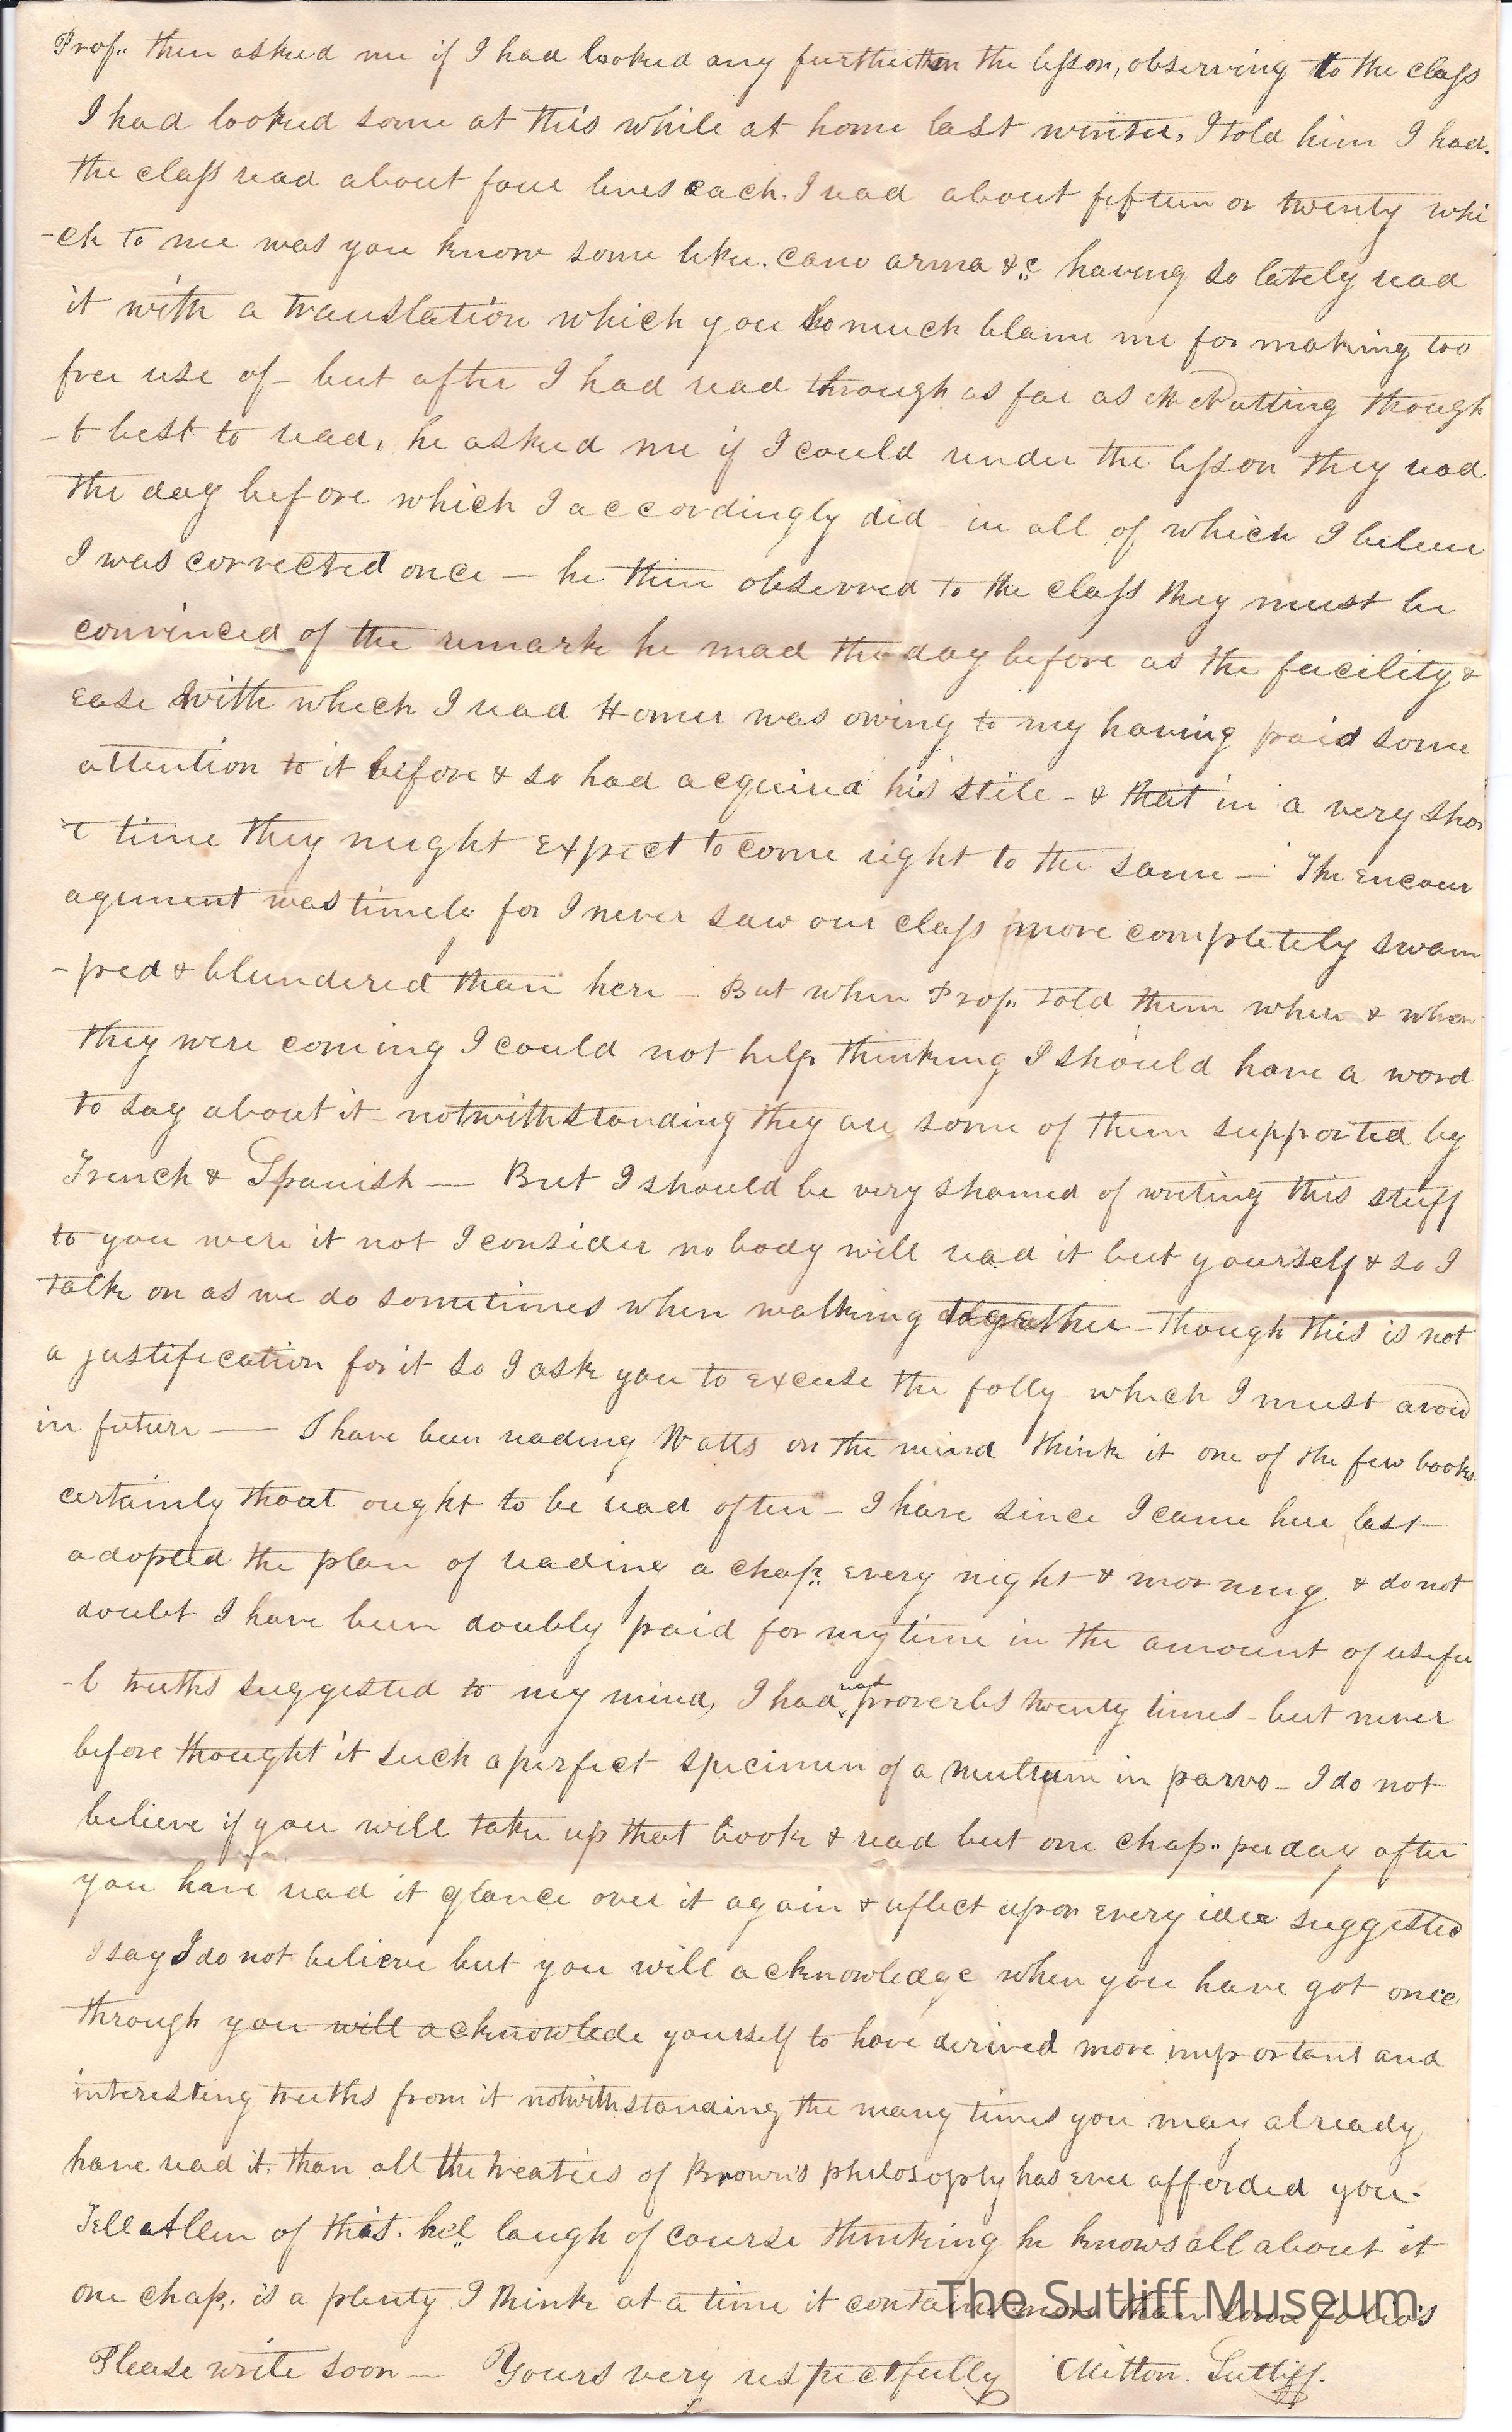 Prof.. then asked me if I had looked any further in the lesson, observing to the class
I had looked some at this while at home last winter, I told him I had.
the class read about four lines each. I read about fifteen or twenty whi
-ch to me was you know some like. cano arma &c having so lately read
it with a translation which you so much blame me for making too
free use of - but after I had read through as far as Mr Nutting though
-t best to read, he asked me if I could render the lesson they read
the day before which I accordingly did in all of which I believe
I was corrected once — he then observed to the class they must be
convinced of the remark he mad the day before as the facility &
ease with which I read Homer was owing to my having paid some
attention to it before & so had acquired his stile - & that in a very shor
t time they might expect to come right to the same — The encour
agement was timely for I never saw our class more completely swam
-ped & blundered than here - But when Prof.. told them where & when
they were coming I could not help thinking I should have a word
to say about it - notwithstanding they are some of them supported by
French & Spanish — But I should be very shamed of writing this stuff
to you were it not I consider no body will read it but yourself & so I
talk on as we do sometimes when walking together - though this is not
a justification for it so I ask you to excuse the folly which I must avoid
in future — I have been reading Watts on the mind think it one of the few books
certainly that ought to be read often - I have since I came here last
adopted the plan of reading a chap.. every night & morning & do not
doubt I have been doubly paid for my time in the amount of usefu
-l truths suggested to my mind, I had read proverbs twenty times - but never
before thought it such a perfect specimen of a multum in parvo - I do not
believe if you will take up that book & read but one chap.. per day after
you have read it glance over it again & reflect upon every idea suggested
I say I do not believe but you will acknowledge when you have got once
through you will acknowlede yourself to have derived more important and
interesting truths from it notwithstanding the many times you may already
have read it, than all the treaties of Brown's philosophy has ever afforded you.
Tell Allen of this. he'l laugh of course thinking he knows all about it
one chap. is a plenty I think at a time it contains more than some folio's
Please write soon — Yours very respectfully Milton. Sutliff.
The Sutliff Museum